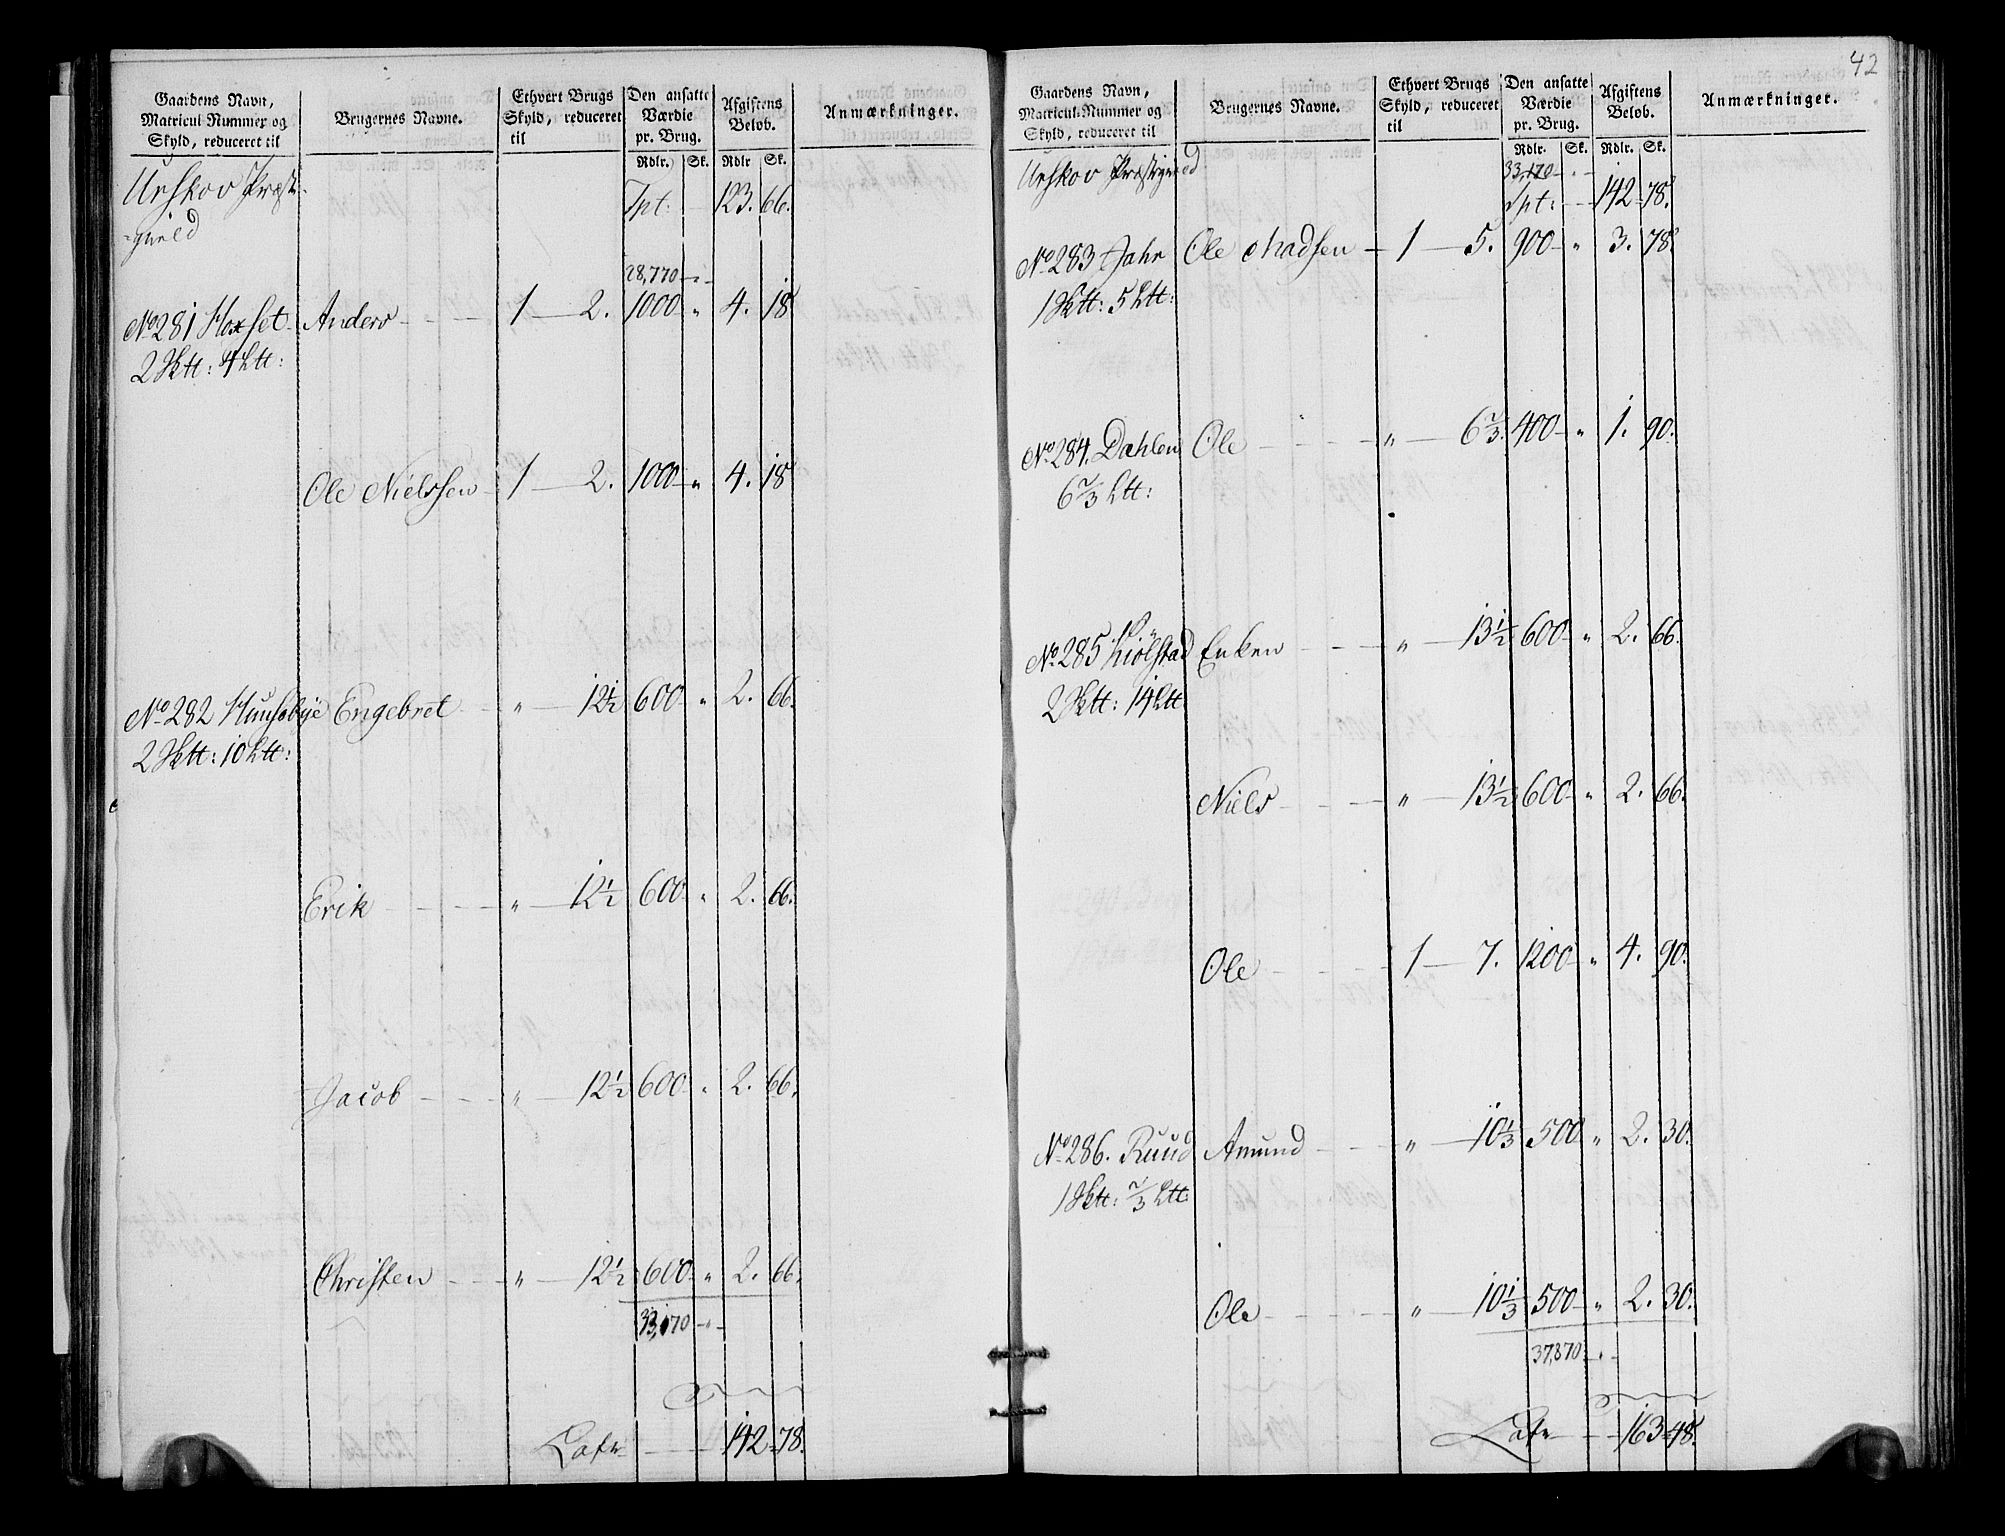 Gaardens Navn, Matricul-Nummer og Skyld, reduceret til | Brugernes Navne. | Ethvert Brugs Skyld, reduceret til | Den ansatte Værdie pr. Brug. | Afgiftens Beløb. | Anmærkninger.
Rdlr. Sk. Rdlr Sk.
Urskov Præste- Tpt: 123. 66.
-gield
28,770 - "
No 281 Hoxset Anders 1 2. 1000 " 4. 18
2 Sktt: 4 Ltt:
Ole Nielssen 1 2. 1000 " 4. 18
No 282 Huusebye Engebret " 12½ 600 " 2. 66.
2 Sktt: 10 Ltt:
Erik " 12½ 600 " 2. 66.
Jacob " 12½ 600 " 2. 66.
Christen " 12½ 600 " 2. 66.
33,170 - " -
Latr 142 78.
42
Gaardens Navn, Matricul-Nummer og Skyld, reduceret til | Brugernes Navne. | Ethvert Brugs Skyld, reduceret til | Den ansatte Værdie pr. Brug. | Afgiftens Beløb. | Anmærkninger.
Rdlr. Sk. Rdlr. Sk.
33,170 - " -
Urskov Præstegield Tpt: 142 78.
No 283 Jahr Ole Madsen 1 5. 900 " 3. 78
1 Sktt: 5 Ltt:
No 284. Dahlen Ole " 6⅔. 400 " 1. 90.
6⅔ Ltt:
No 285 Kiølstad Enken " 13½ 600 " 2. 66.
2 Sktt: 14 Ltt
Niels " 13½ 600 " 2. 66.
Ole 1 7. 1200 " 4. 90.
No 286. Ruud Amund " 10⅓ 500 " 2. 30.
1 Sktt: ⅔ Ltt:
Ole " 10⅓ 500 " 2. 30.
37,870 - " -
Latr 163 48.